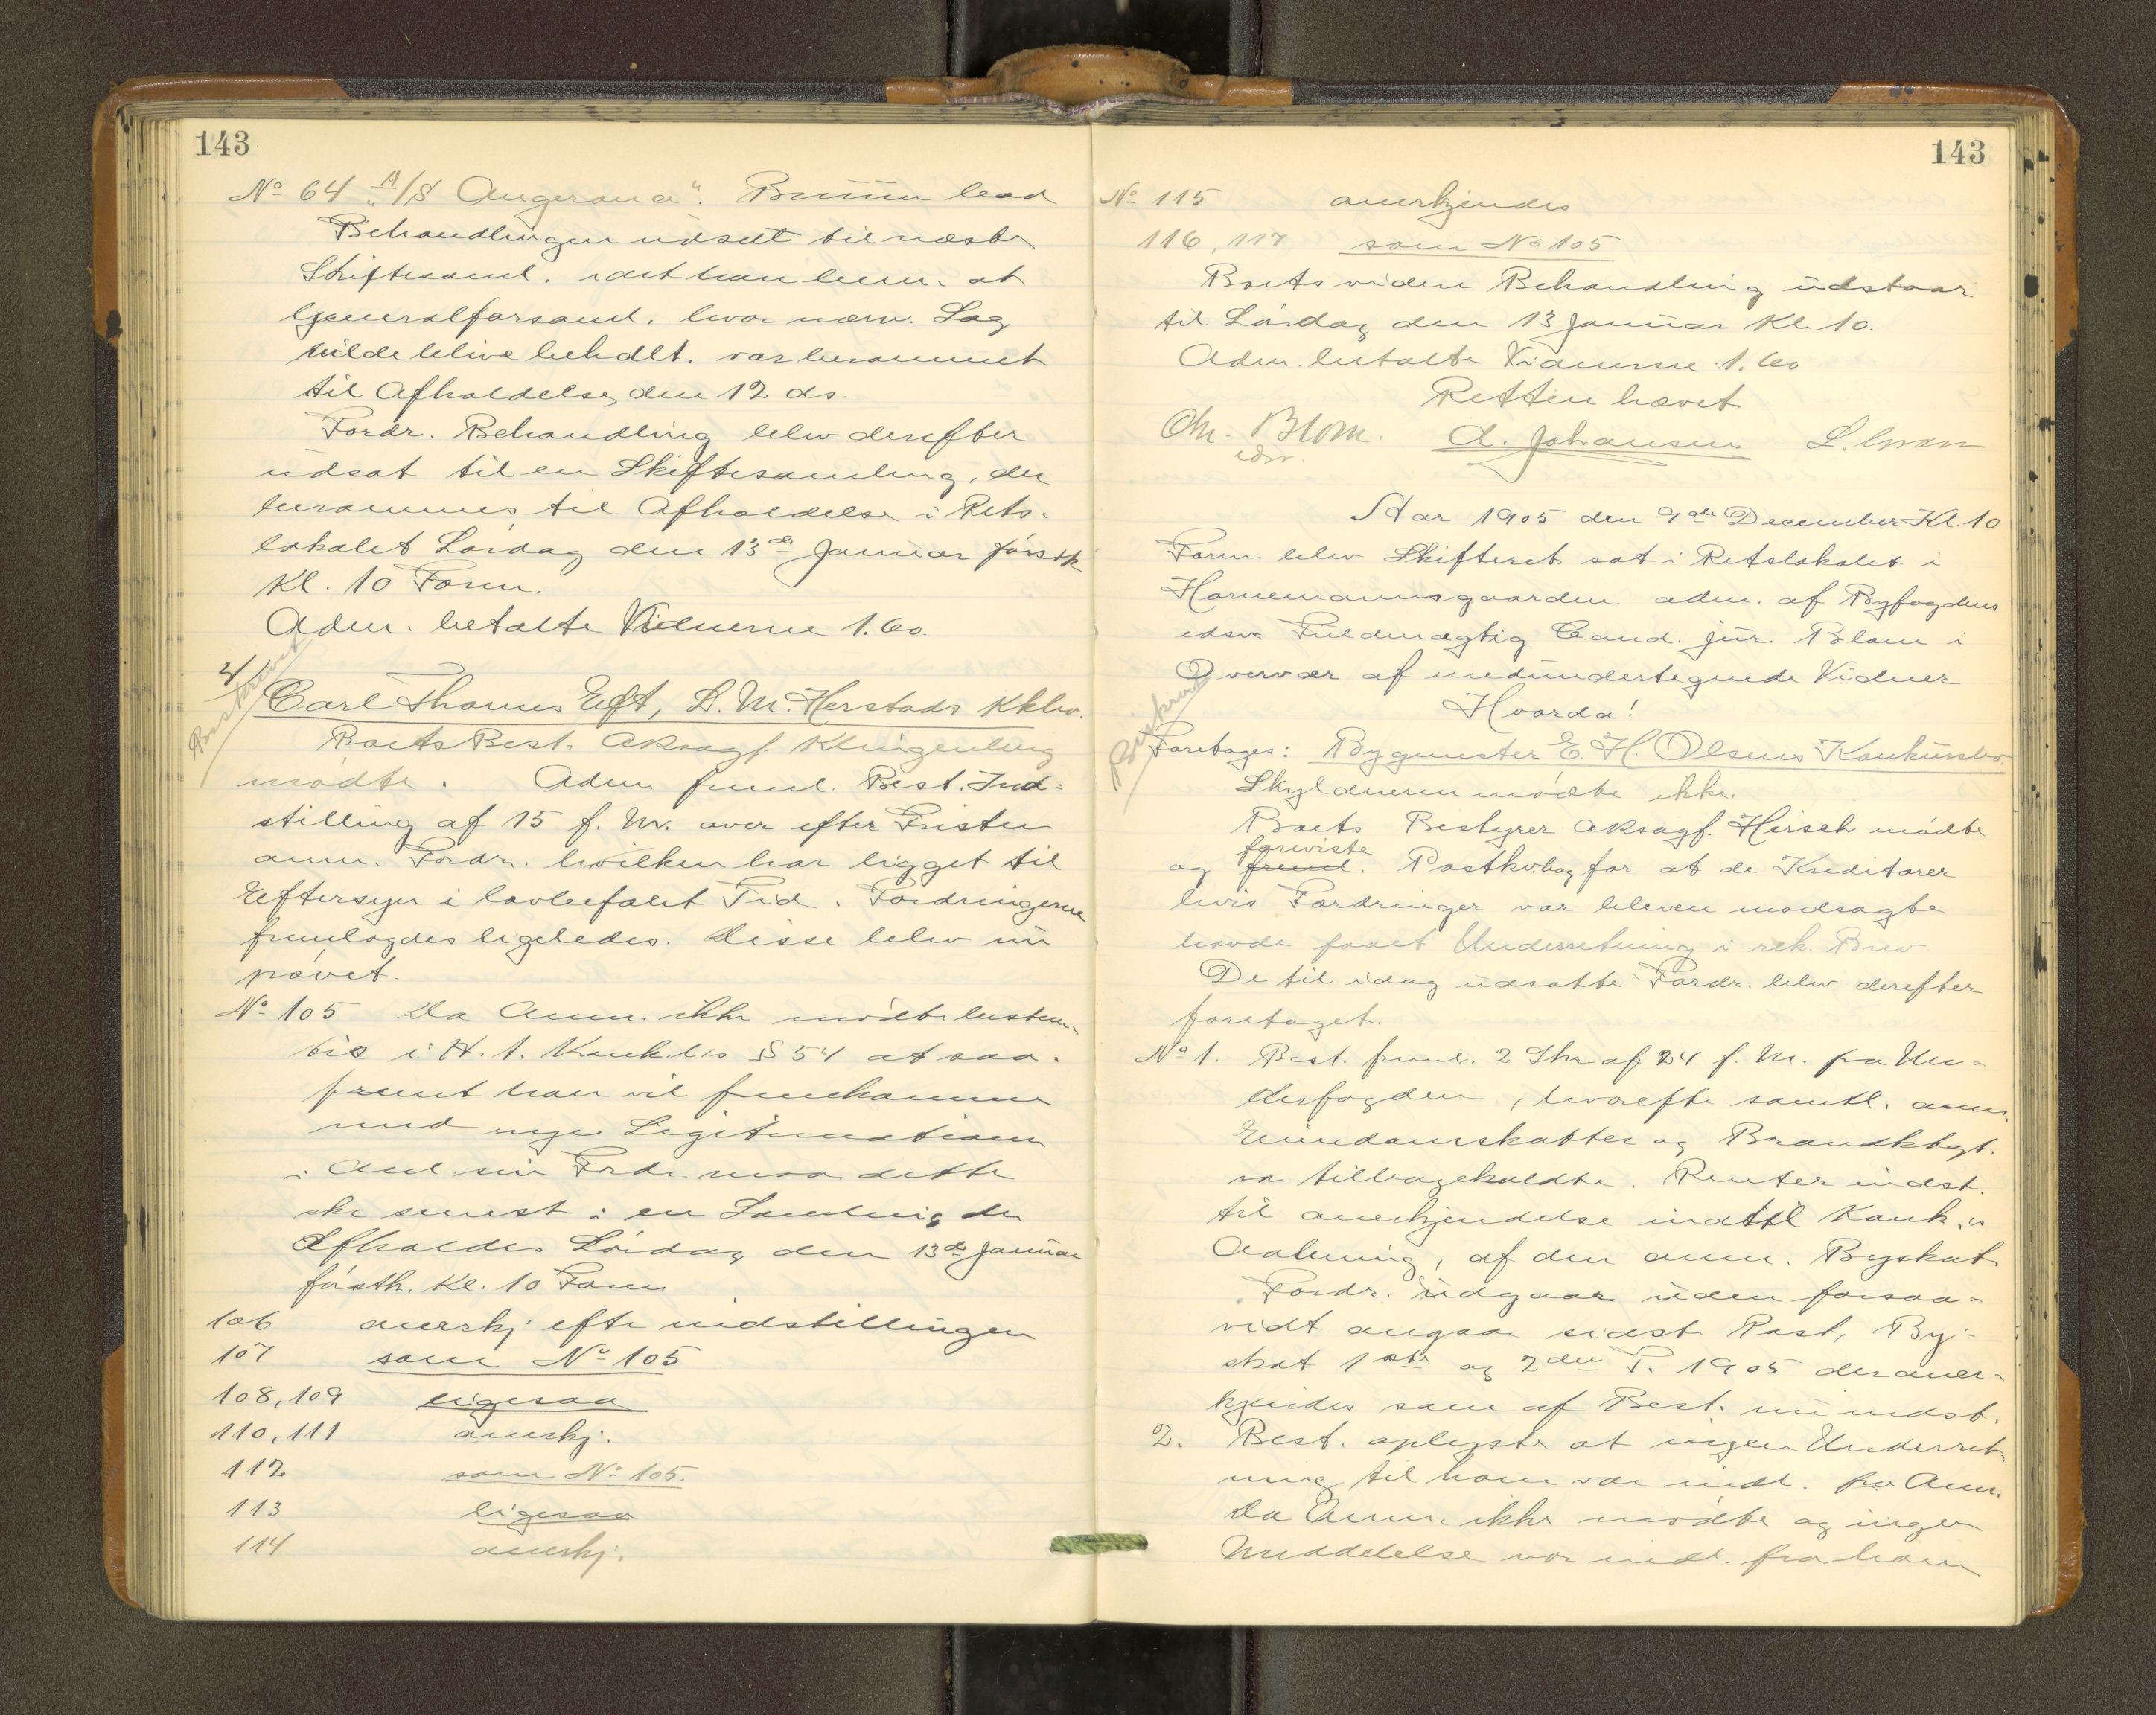 143
No 64 "A/S Angerona". Bruun bad
Behandlingen udsatt til næste
Skiftesaml. idet han bem. at
Generalforsaml. hvor nærv. Sag
vilde blive behdlt. var berammet
til Afholdelse den 12 ds.
Fordr. Behandling blev derefter
udsat til en Skiftesamling, der
berammes til Afholdelse i Rets-
lokalet Lørdag den 13de Januar førstk
Kl. 10 Form.
Adm. betalte Vidnerne 1.60.
2/
Beskrevet
Carl Thomes Eft, L. M. Herstads Kkbo.
Boets Best. Oksagf. Klingenberg
mødte. Adm freml. Best. Ind-
stilling af 15 f. M. over efter Fristen
anm. Fordr. hvilken har ligget til
Eftersyn i lovbefalet Tid. Fordringerne
fremlagdes ligeledes. Disse blev nu
prøvet.
No 105 Da Anm. ikke mødte bestem-
tes i H. t. Konkl's § 54 at saa-
fremt han vil fremkomme
med nye Legitimationer
i Anl. sin Fordr. maa dette
ske senest i en Samling der
Afholdes Lørdag den 13de Januar
førstk. Kl. 10 Form
106 anerkj efter indstillingen
107 som No 105
108, 109 ligesaa
110, 111 anerkj.
112 som No 105.
113 ligesaa
114 anerkj.
143
No 115 anerkjendes
116, 117 som No 105
Boets videre Behandling udstaar
til Lørdag den 13 Januar Kl. 10.
Adm. betalte Vidnerne 1.60
Retten hævet
Chr. Blom. A. Johansen L.
edsv.
Aar 1905 den 9de December Kl. 10
Form. blev Skifteret sat i Retslokalet i
Hornemannsgaarden adm. af Byfogdens
edsv. Fuldmægtig Cand. jur. Blom i
Overvær af medundertegnede Vidner
Hvorda!
Beskrevet
Foretages: Bygmester E. H. Olsens Konkursbo.
Skyldneren mødte ikke.
Boets Bestyrer Oksagf. Hirsch mødte
foreviste
og freml. Postkv.bog for at de Kreditorer
hvis Fordringer var bleven modsagte
havde faaet Underretning i rek. Brev
De til idag udsatte Fordr. blev derefter
foretaget.
No 1. Best. freml. 2 Skr af 24 f. M. fra Un-
derfogden, hvorefter samtl. anm.
Eiendomsskatter og Brandktgt.
va tilbagekaldte. Renter indst.
til anerkjendelse indtil Konk."
Aabning, af den anm. Byskat
Fordr. udgaar uden forsaa-
vidt angaar sidste Post, By-
skat 1ste og 2den T. 1905 der aner-
kjendes som af Best. nu indst.
2. Best. oplyste at ingen Underret-
ning til ham var indl. fra Anm.
Da Anm. ikke mødte og ingen
Meddelelse var indl. fra ham